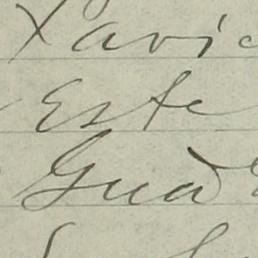 Xavie
Este
Guad